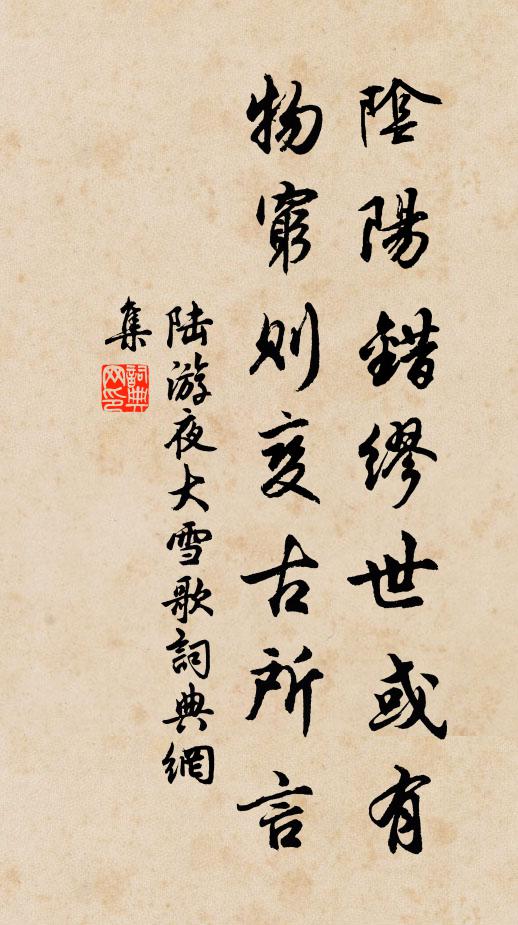 陰陽錯繆世或有
物窮則变古所言
陆游夜大雪歌詞典網
集
詞典
网印